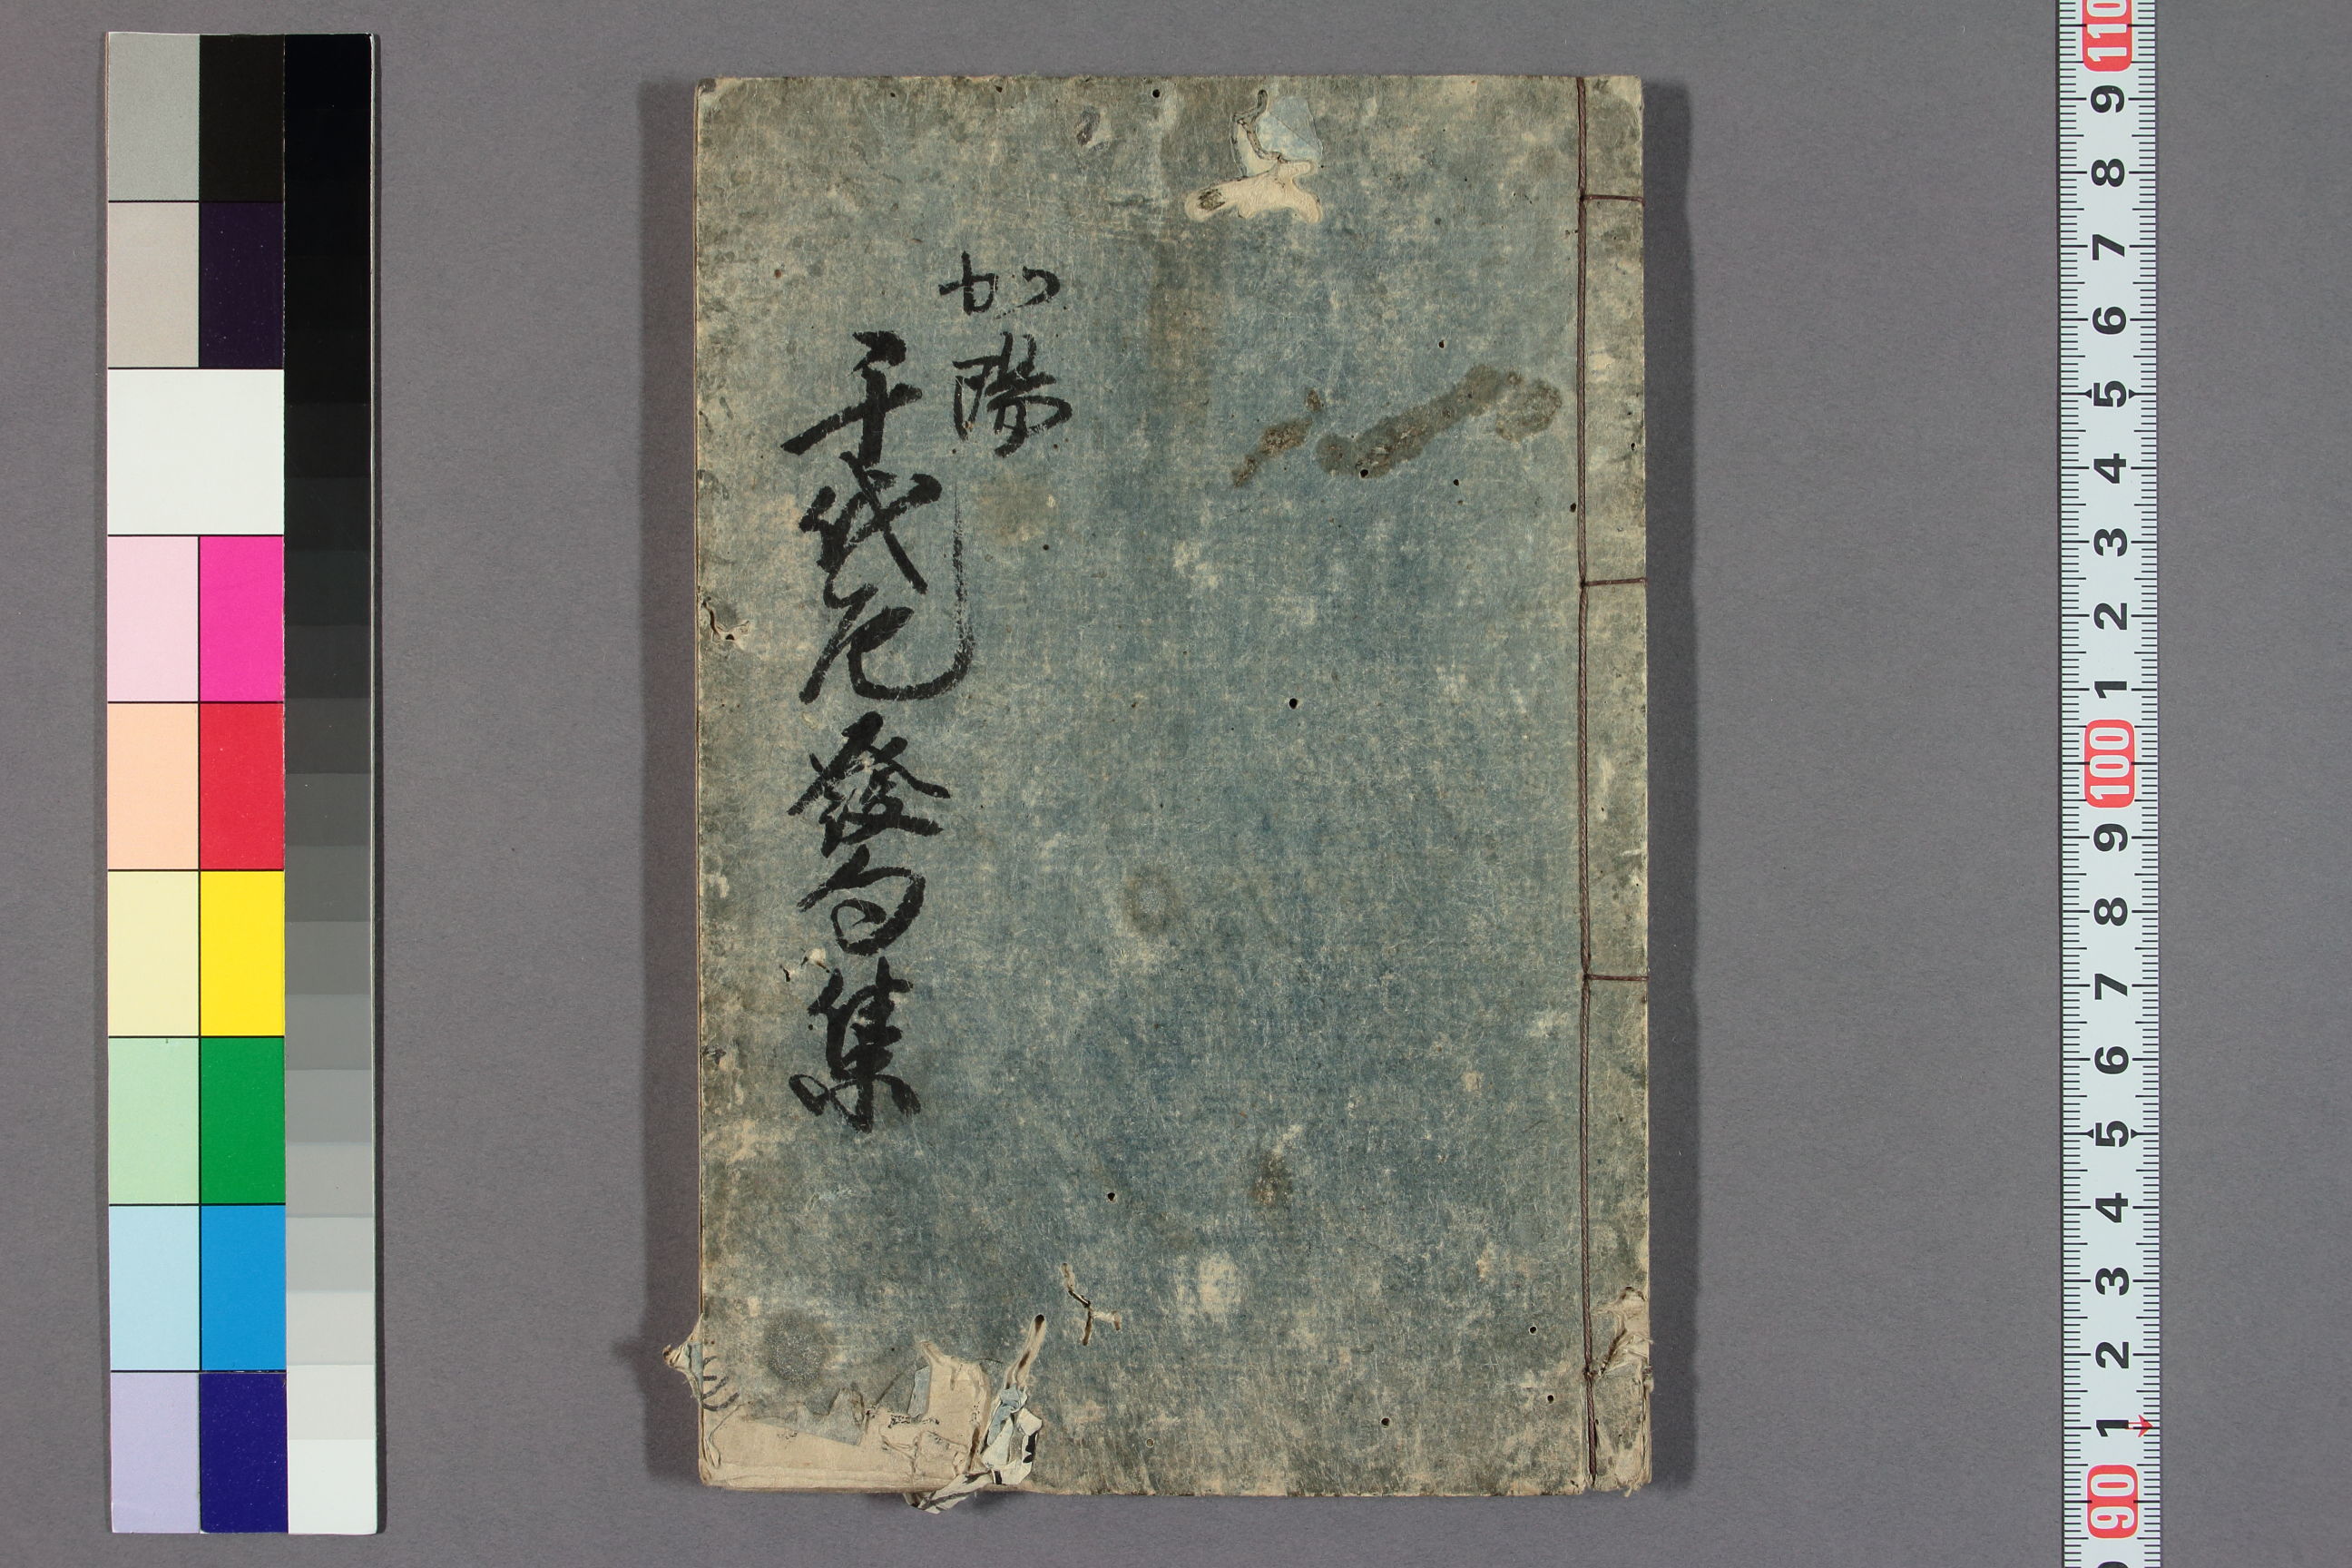 加陽
千代尼發句集
110
9
8
7
6
5
4
3
2
1
100
9
8
7
6
5
4
3
2
1
90